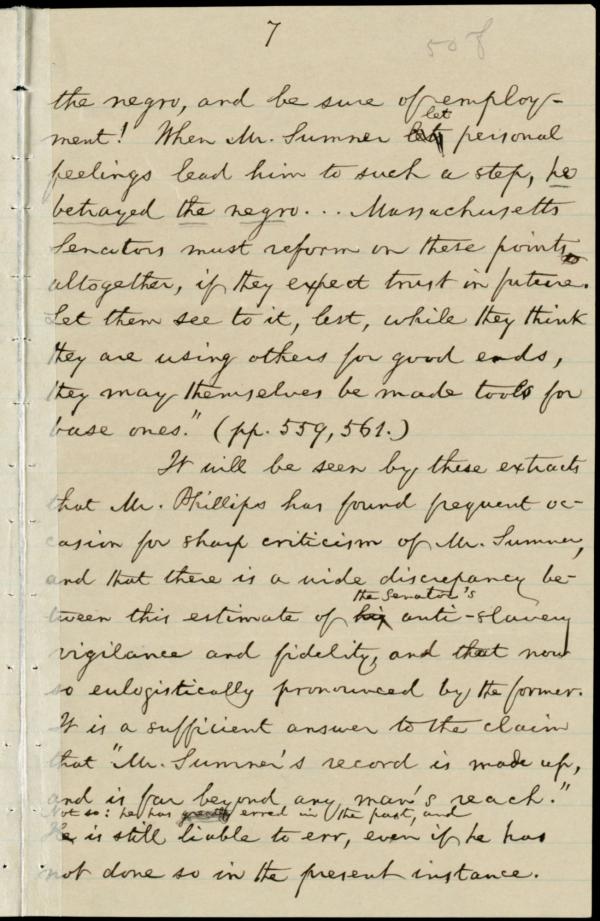 7
50 f
the negro, and be sure of employ-
ment! When Mr. Sumner let personal
feelings lead him to such a step, he
betrayed the negro... Massachusetts
Senators must reform on these points
altogether, if they expect trust in future.
Let them see to it, lest, while they think
they are using others for good ends,
they may themselves be made tools for
base ones." (pp. 559, 561.)
It will be seen by these extracts
that Mr. Phillips has found frequent oc-
casion for sharp criticism of Mr. Sumner,
and that there is a wide discrepancy be-
the Senator's
tween this estimate of his anti-slavery
vigilance and fidelity, and that now
so eulogistically pronounced by the former.
It is a sufficient answer to the claim
that "Mr. Sumner's record is made up,
and is far beyond any man's reach."
Not so: he has greatly erred in the past, and
He is still liable to err, even if he has
not done so in the present instance.